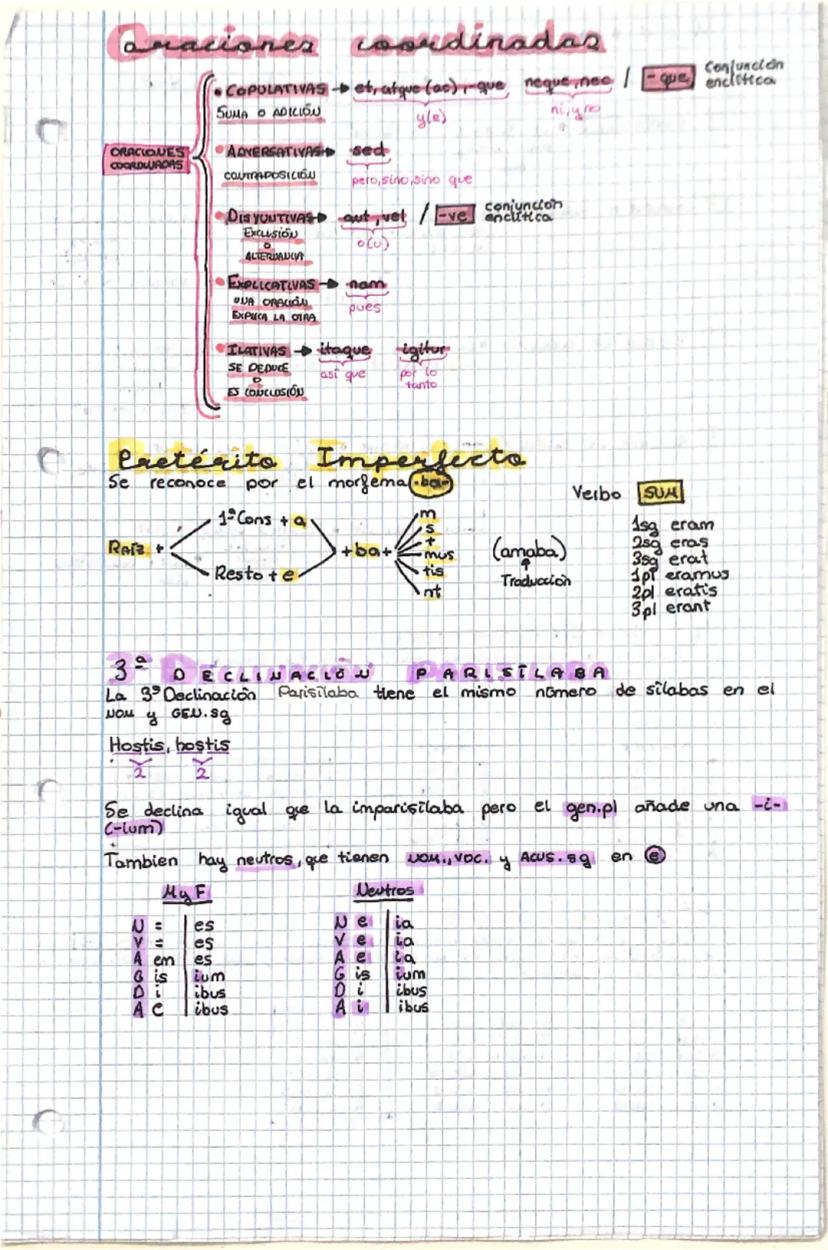 Oraciones coordinadas
ORACIONES COORDINADAS
• COPULATIVAS → et, atque (ac), -que neque, nec / -que Conjunción enclítica
SUMA O ADICIÓN y(e) ni, y no
• ADVERSATIVAS → sed
CONTRAPOSICIÓN pero, sino, sino que
• DISYUNTIVAS → aut, vel / -ve conjunción enclítica
EXCLUSIÓN o(u)
O
ALTERNANCIA
• EXPLICATIVAS → nam
UNA ORACIÓN pues
EXPLICA LA OTRA
• ILATIVAS → itaque igitur
SE DEDUCE así que por lo tanto
O
ES CONCLUSIÓN
Pretérito Imperfecto
Se reconoce por el morfema -ba-
Verbo SUM
RAÍZ +
1ª Cons + a
Resto + e
+ ba +
m
s
t
mus
tis
nt
(amaba)
Traducción
1sg eram
2sg eras
3sg erat
1pl eramus
2pl eratis
3pl erant
3ª DECLINACIÓN PARISÍLABA
La 3ª Declinación Parisílaba tiene el mismo número de sílabas en el
NOM y GEN.sg
Hostis, hostis
2 2
Se declina igual que la imparisílaba pero el gen.pl añade una -i-
(-ium)
Tambien hay neutros, que tienen NOM., VOC. y ACUS.sg en e
M y F Neutros
N = es N e ia
V = es V e ia
A em es A e ia
G is ium G is ium
D i ibus D i ibus
A e ibus A i ibus